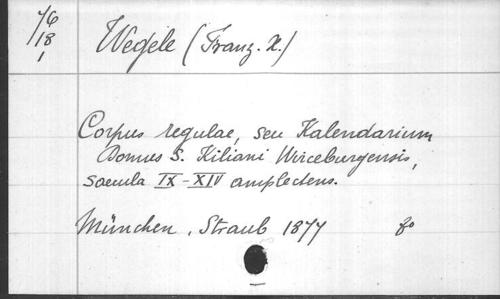 76
18
1
Wegele (Franz. X.)
Corpus regulae, seu Kalendarium
Domus S. Kiliani Wirceburgensis,
saecula IX-XIV amplectens.
München, Straub 1877 8º